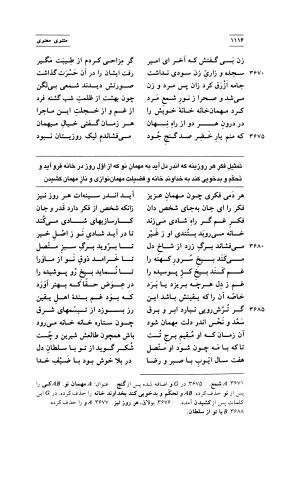 ۱۱۱۶
مثنوی معنوی
زن بسی گفتش که آخر ای امیر
گر مزاحی کردم از طیبت مگیر
۳۶۷۰
سجده و زاری زن سودی نداشت
رفت ایشان را در آن حسرت گذاشت
جامه ازرق کرد زان پس مرد و زن
صورتش دیدند شمعی بی‌لگن
می‌شد و صحرا ز نور شمع مرد
چون بهشت از ظلمت شب گشته فرد
کرد مهمان‌خانه خانهٔ خویش را
از غم و از خجلت این ماجرا
در درون هر دو از راه نهان
هر زمان گفتی خیال میهمان
۳۶۷۵
که منم یار خضر صد گنج جود
می‌فشاندم لیک روزیتان نبود
تمثیل فکر هر روزینه که اندر دل آید به مهمان نو که از اول روز در خانه فرو آید و
تحکم و بدخویی کند به خداوند خانه و فضیلت مهمان‌نوازی و ناز مهمان کشیدن
هر دمی فکری چون مهمان عزیز
آید اندر سینه‌ات هر روز نیز
فکر را ای جان به‌جای شخص دان
زانکه شخص از فکر دارد قدر و جان
فکر غم گر راه شادی می‌زند
کارسازیهای شادی می‌کند
خانه می‌روبد به‌تندی او ز غیر
تا در آید شادی نو ز اصل خیر
۳۶۸۰
می‌فشاند برگ زرد از شاخ دل
تا بروید برگ سبز متصل
می‌کند بیخ سرور کهنه را
تا خرامد ذوق نو از ماورا
غم کند بیخ کژ پوسیده را
تا نماید بیخ رو پوشیده را
غم ز دل هرچه بریزد یا برد
در عوض حقا که بهتر آورد
خاصه آن را که یقینش باشد این
که بود غم بندهٔ اهل یقین
۳۶۸۵
گر ترش‌رویی نیارد ابر و برق
رز بسوزد از تبسمهای شرق
سعد و نحس اندر دلت مهمان شود
چون ستاره خانه خانه می‌رود
آن زمان که او مقیم برج تست
باش همچون طالعش شیرین و چست
تا که با مه چون شود او متصل
شکر گوید از تو با سلطان دل
هفت سال ایوب با صبر و رضا
در بلا خوش بود با ضیف خدا